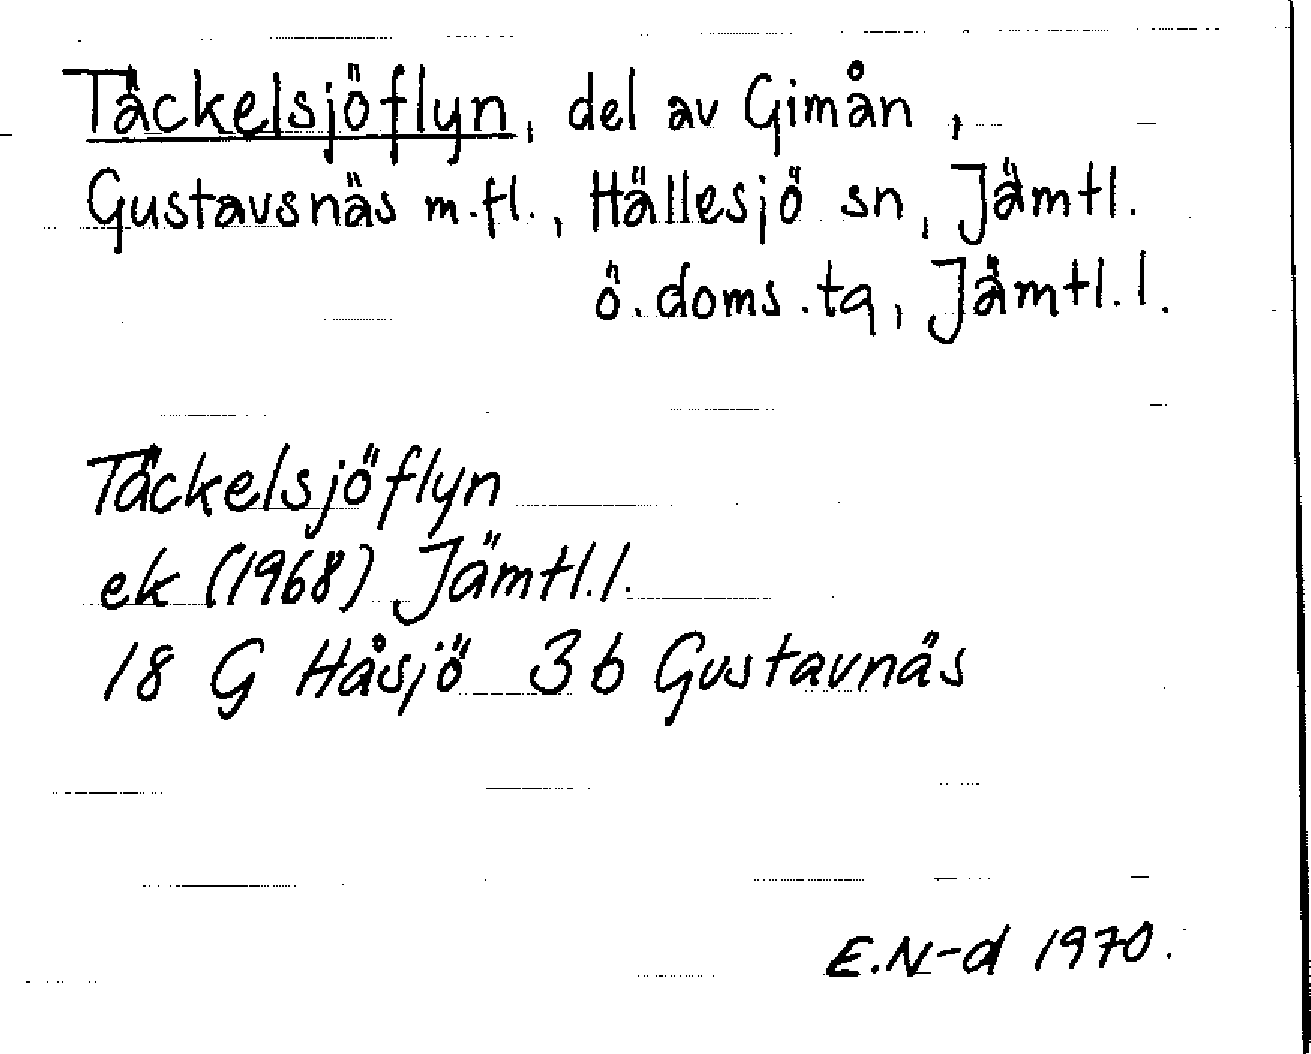 Täckelsjöflyn, del av Gimån,
Gustavsnäs m.fl., Hällesjö sn, Jämtl.
ö.doms.tg, Jämtl.l.
Täckelsjöflyn
ek (1968) Jämtl.l.
18 G Håsjö 3b Gustavnäs
E.N-d 1970.